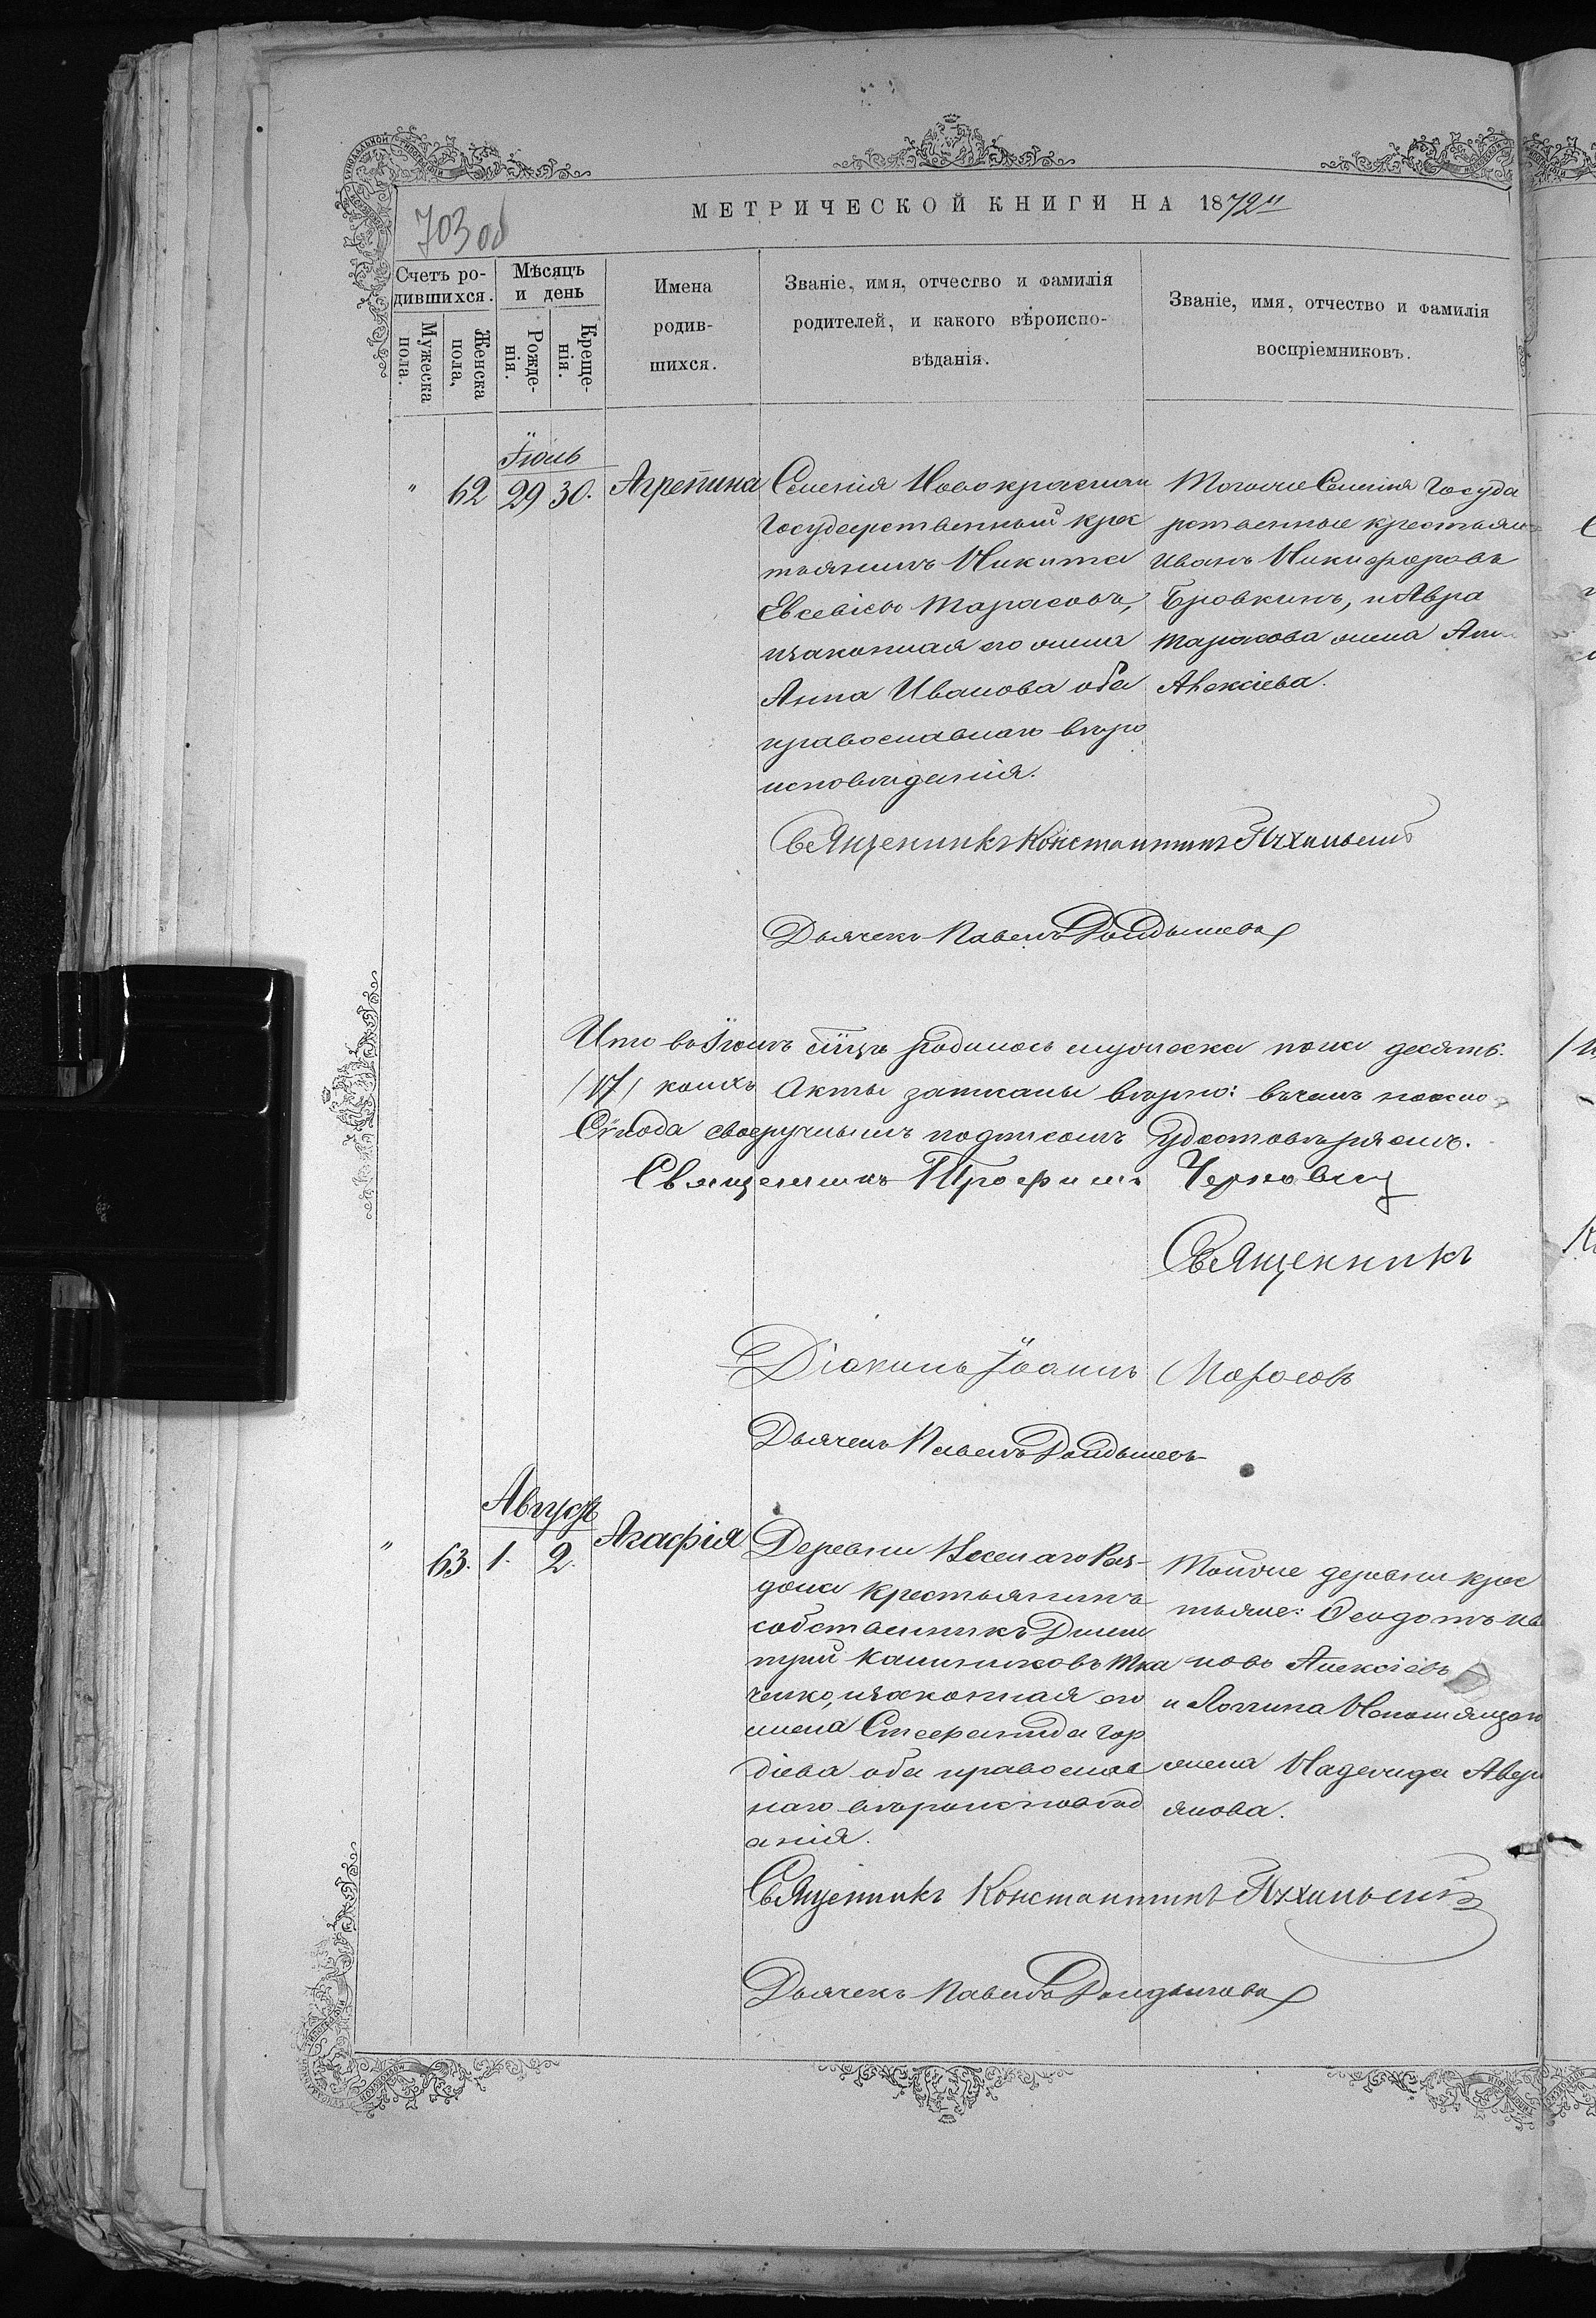 МЕТРИЧЕСКОЙ КНИГИ НА 1872
703 об
Счетъ ро-
дившихся.
Мужеска
пола.
Женска
пола,
Мѣсяцъ
и день
Рожде-
нія.
Креще-
нія.
Имена
родив-
шихся.
Званіе, имя, отчество и фамилія
родителей, и какого вѣроиспо-
вѣданія.
Званіе, имя, отчество и фамилія
воспріемниковъ.
Іюль
" 62 29 30. Агрепина
Селенія Новокрасная
Государственный крес
тьянинъ Никита
Евсевіевъ Тарасовъ,
изаконная его жена
Анна Иванова оба
православнаго вѣро
исповѣданія.
Тогоже Селенія Госуда
рственные крестьяне
Иванъ Никифоровъ
Бровкинъ, и Авра
Тарасова жена
Алексіева.
Священникъ Константинъ
Дьячекъ Павелъ
родилось мужеска пола десять
/17/ коихъ Акты записаны вѣрно: въ чемъ
Сѵнода своеручнымъ подписомъ удостовѣряемъ.
Священникъ Трофимъ
Священникъ
Діаконъ Іоаннъ Моросовъ
Дьячекъ Павелъ
Августъ
" 63. 1. 2. Агафія
Деревни Веселаго Раз-
дола крестьянинъ
собственникъ Дими
трій Калиниковъ Тка
ченко, изаконная его
жена Стефанида Гор
діева оба православ
наго вѣроисповѣд
анія.
Тойже деревни крес
тьяне: Ѳеодотъ Ива
новъ Алексіевъ
и Логгина
жена Надежда Авер
янова.
Священникъ Константинъ
Дьячекъ Павелъ